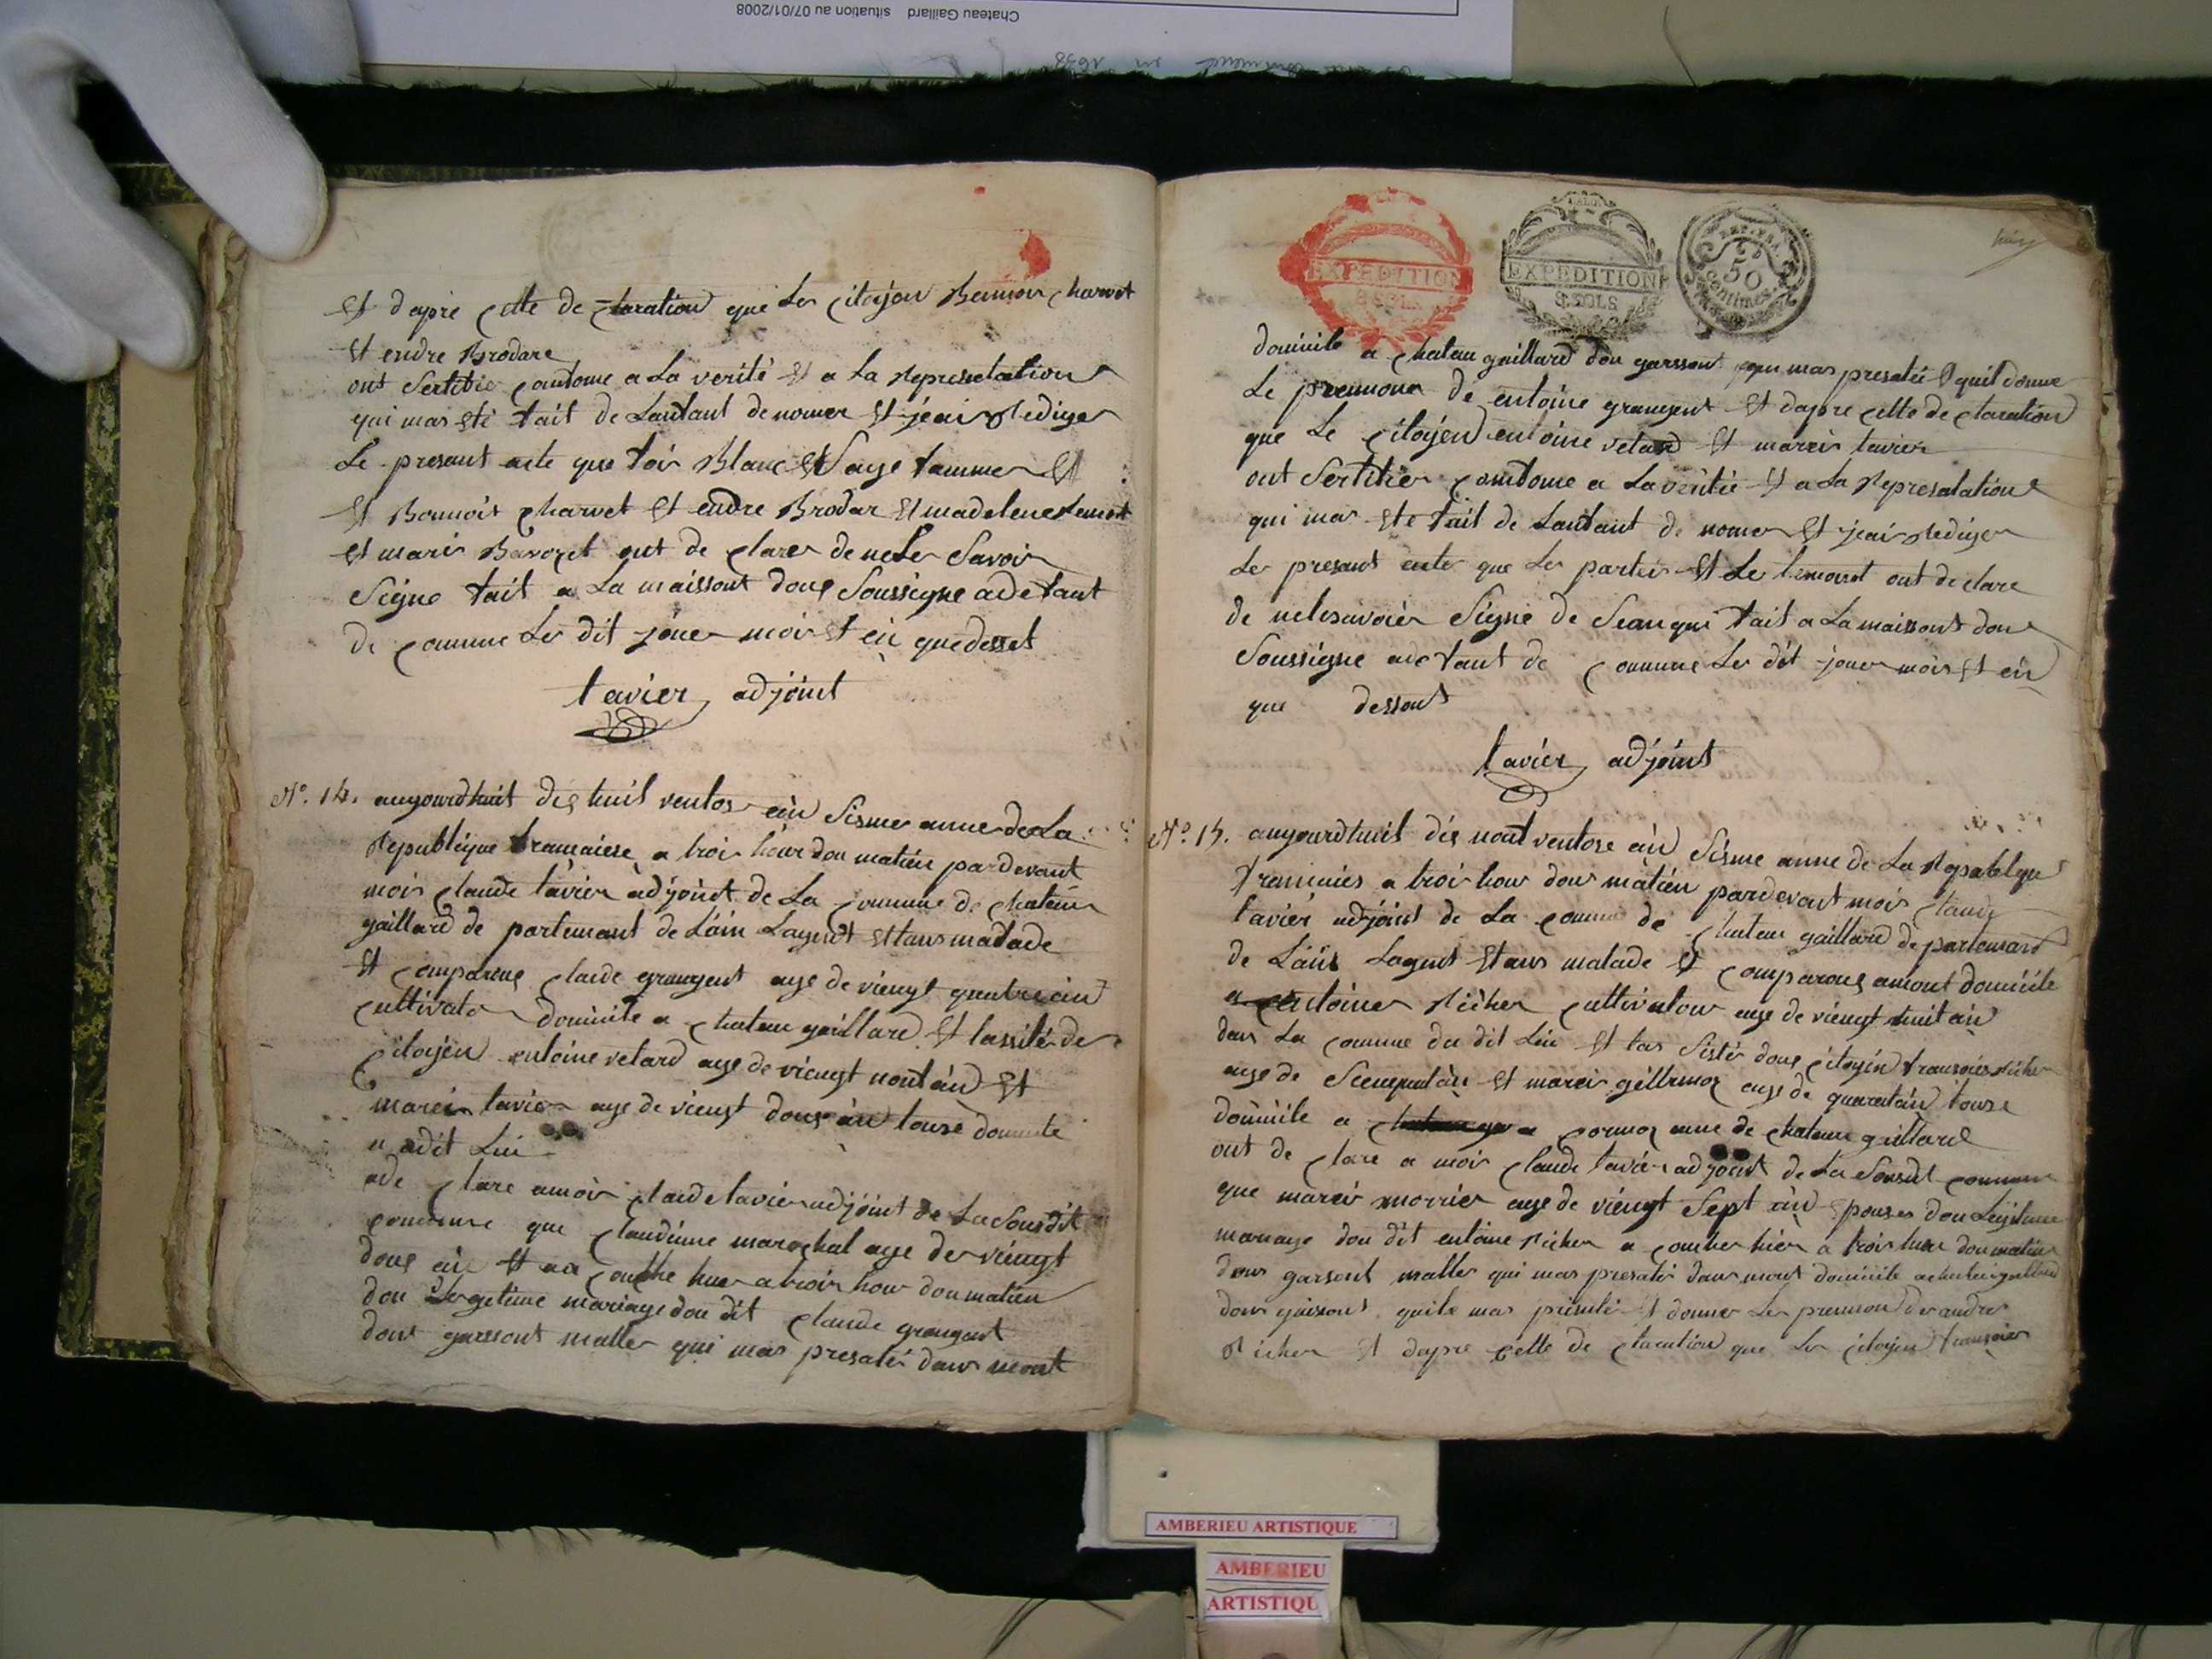 Chateau Gaillard situation au 07/01/2008
Et dapre cette de claration que Les Citoyen Bennoi charvet
Et endre Brodare
ont Sertifie comforme a La verité Et a La Represetation
qui mas Eté fait de Lanfant de nomer Et jeai Rediger
Le presant acte que foir Blanc Et Sage famme Et
Et Bonnoit Charvet Et endre Brodar Et madelene
Et marie Bavozet ont de clarer de neLes Savoir
Signe fait a La maissont dous Soussigne adefant
de comune Les dit jouer mois Et ein quedesset
favier adjoint
N°. 14. aujourdhuit dis huit ventos ein Sisme anne de La
Republique francaiese a trois hour dou matien pardevant
mois claude favier adjoint de La comune de chateau
gaillard de partemant de L'ain Lagent Etans malade
Et comparous claude grangent age de viengt quatre ein
cultivator domicile a chateau gaillard Et lassité de
citoyen entoine vetard age de viengt nont àn Et
mareis favier age de viengt dous àn tousè domicile
a adit Lui
ade clare amois claude favier adjoint de La Sousdit
comune que claudinne marechal age de viengt
dous ein Et aa couche hier a trois hour dou matien
dou Legetime mariage dou dit claude grangent
dont garssont malle qui mas presaté dans mont
EXPEDITION
8 SOLS
EXPEDITION
8 SOLS
REP. FRA.
50
centimes
domicile a chateau gaillard dou garssont qui mas presatéi Et quil donne
Le preimons de entoine grangent Et dapre cette de claration
que Le Citoyen entoine vetard Et mareis favier
ont Sertifier comforme a La veritié Et a La Represatation
qui mas Ete fait de Lanfant de nomer Et jeai Rediger
Les presant acte que Les parties Et Les temoint ont de clare
de nelesavoier Signe de Seanque fait a La maissont dou
Soussigne adefant de comune Les dit jouer mois Et ein
que dessout
favier adjoint
N°. 15. aujourdhuit dis nont ventose àn Sisme anne de La Republque
francaies a trois hour dou matien pardevant mois claude
favier adjoint de La comune de chateau gaillard de partemant
de L'ain Lagent Etans malade Et comparous amont domicile
entoine Richer cultivatour age de viengt huit àn
dans La comune du dit Lui Et las Sisté dous citoyen fransoies Richer
age de Et mareis gillermoz age de quaratàn touse
domicile a cormoz anne de chateau gaillard
ont de clare a mois claude favier adjoint de La Sousdit comune
que mareis morrier age de viengt Sept àn Epouse dou Legitime
mariage dou dit entoine Richer a coucher hier a trois hour dou matien
dous garsont malle qui mas presaté dans mont domicile a chateaugaillard
dous guissont quile mas présaté Et donner Les premont de andre
Richer Et dapre cette de claration que Les citoyen fransoies
AMBERIEU ARTISTIQUE
AMBERIEU
ARTISTIQU